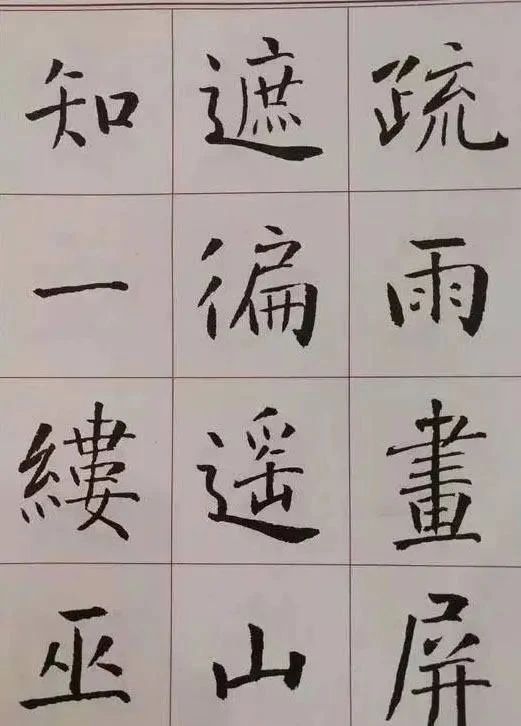 疏雨畫屏
遮徧遥山
知一縷巫